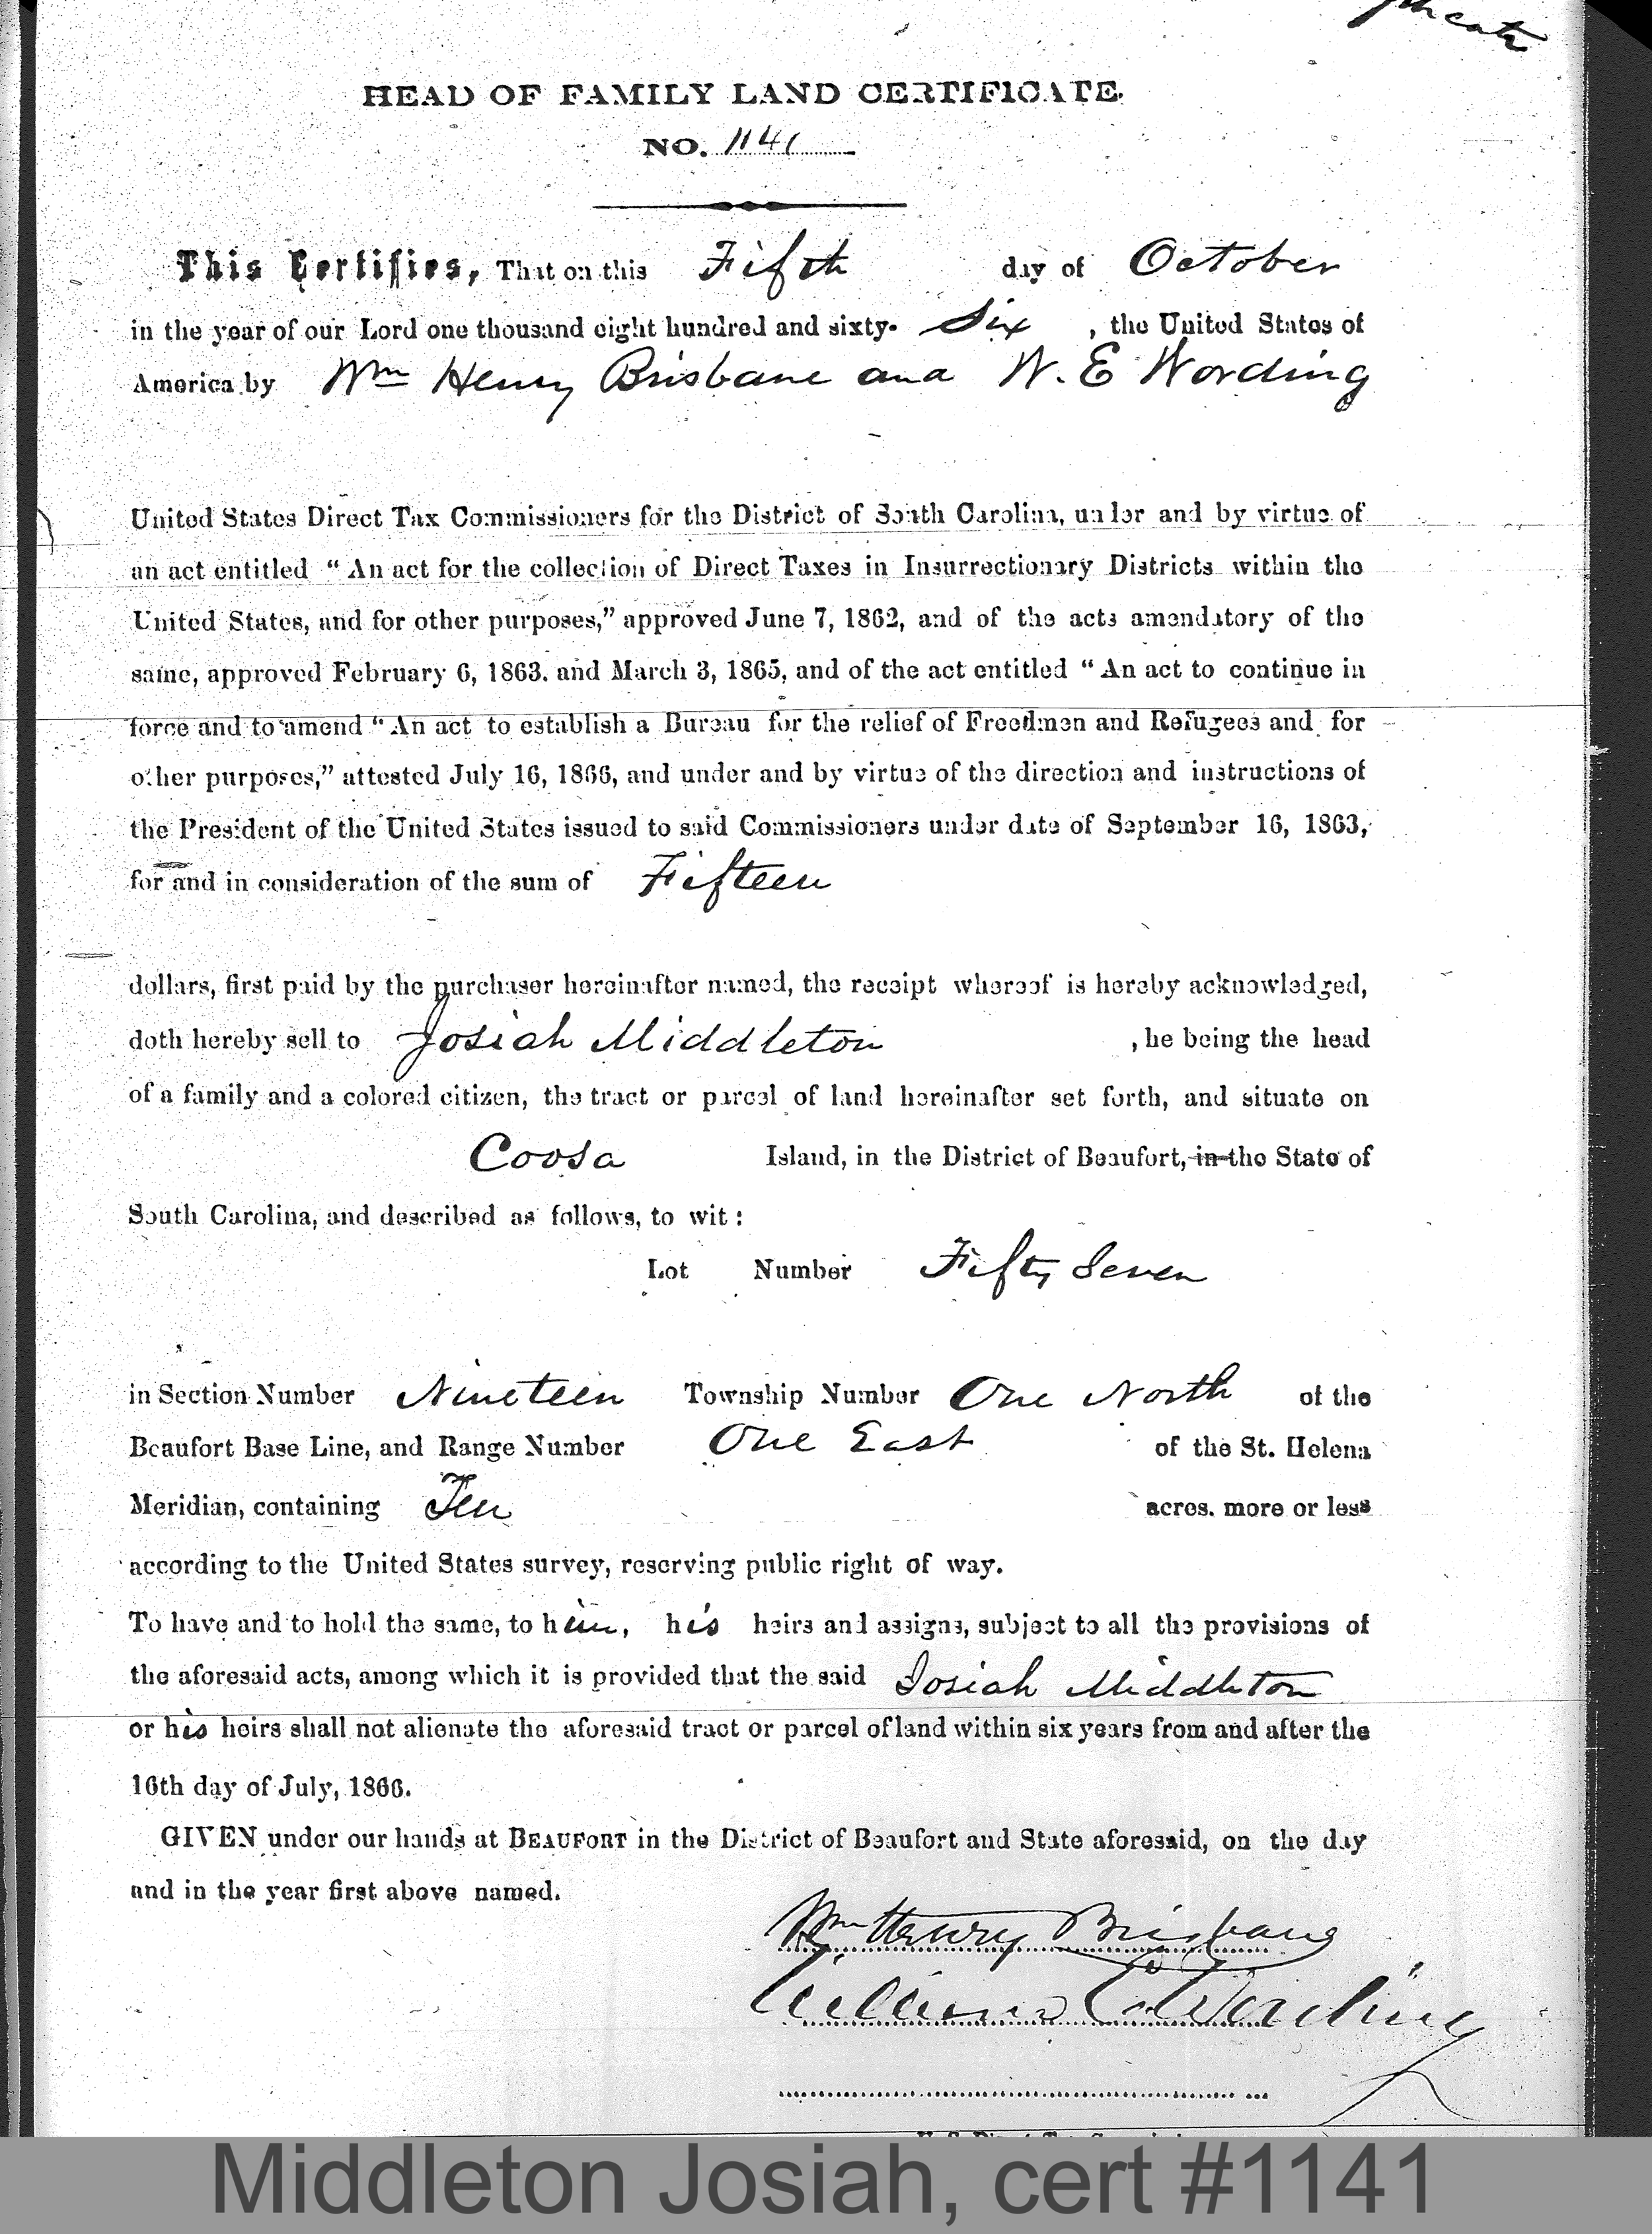 HEAD OF FAMILY LAND CERTIFICATE.
NO. 1141
This Certifies, That on this Fifth day of October
in the year of our Lord one thousand eight hundred and sixty- Six , the United States of
America by Wm Henry Brisbane and W. E Wording
United States Direct Tax Commissioners for the District of South Carolina, under and by virtue of
an act entitled "An act for the collection of Direct Taxes in Insurrectionary Districts within the
United States, and for other purposes," approved June 7, 1862, and of the acts amendatory of the
same, approved February 6, 1863. and March 3, 1865, and of the act entitled "An act to continue in
force and to amend "An act to establish a Bureau for the relief of Freedmen and Refugees and for
other purposes," attested July 16, 1866, and under and by virtue of the direction and instructions of
the President of the United States issued to said Commissioners under date of September 16, 1863,
for and in consideration of the sum of Fifteen
dollars, first paid by the purchaser hereinafter named, the receipt whereof is hereby acknowledged,
doth hereby sell to Josiah Middleton , he being the head
of a family and a colored citizen, the tract or parcel of land hereinafter set forth, and situate on
Coosa Island, in the District of Beaufort, in the State of
South Carolina, and described as follows, to wit :
Lot Number Fifty Seven
in Section Number Nineteen Township Number One North of the
Beaufort Base Line, and Range Number One East of the St. Helena
Meridian, containing Ten acres. more or less
according to the United States survey, reserving public right of way.
To have and to hold the same, to him, his heirs and assigns, subject to all the provisions of
the aforesaid acts, among which it is provided that the said Josiah Middleton
or his heirs shall not alienate the aforesaid tract or parcel of land within six years from and after the
16th day of July, 1866.
GIVEN under our hands at BEAUFORT in the District of Beaufort and State aforesaid, on the day
and in the year first above named.
Wm Henry Brisbane
William E. Wording
Middleton Josiah, cert #1141